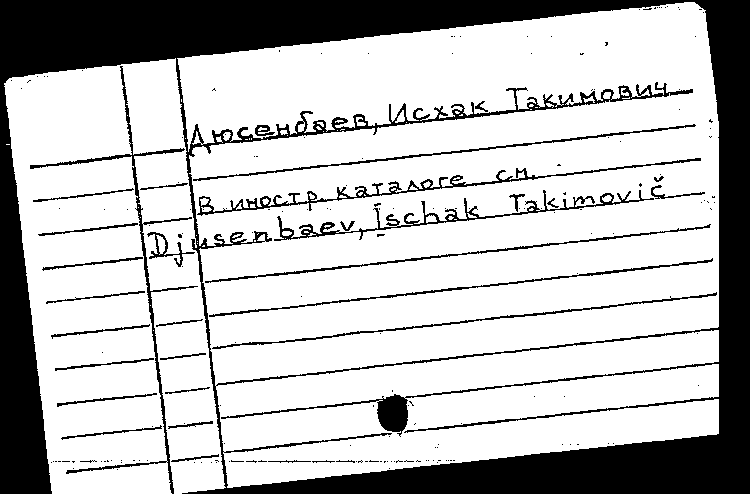 Дюсенбаев, Исхак Такимович
В иностр. каталоге см.
Djusenbaev, Ischak Takimovič